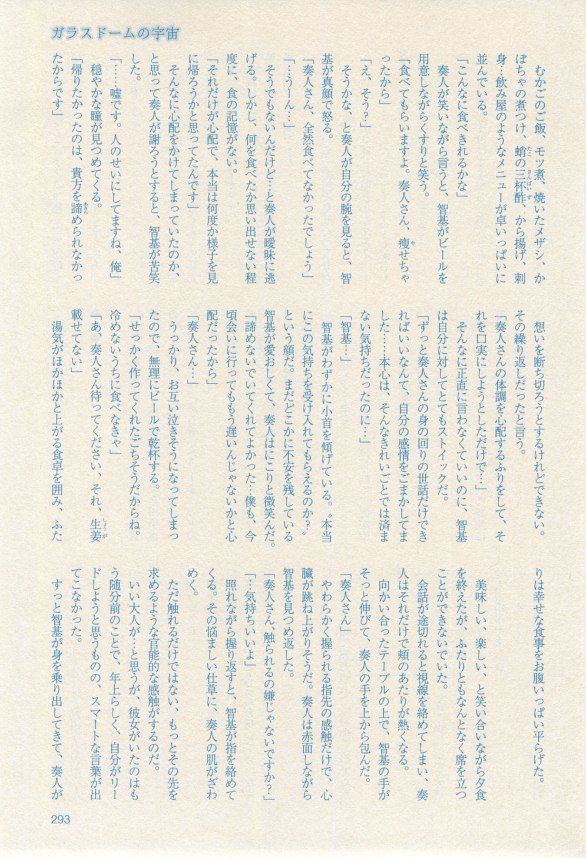 ガラスドームの宇宙
むかごのご飯、モツ煮、焼いたメザシ、か
ぼちゃの煮つけ、蛸の三杯酢、から揚げ、刺
身…飲み屋のようなメニューが卓いっぱいに
並んでいる。
「こんなに食べきれるかな」
奏人が笑いながら言うと、智基がビールを
用意しながらくすりと笑う。
「食べてもらいますよ。奏人さん、痩せちゃ
ったから」
「え、そう？」
そうかな、と奏人が自分の腕を見ると、智
基が真顔で怒る。
「奏人さん、全然食べてなかったでしょう」
「…うーん…」
そうでもないんだけど…と奏人が曖昧に逃
げる。しかし、何を食べたか思い出せない程
度に、食の記憶がない。
「それだけが心配で、本当は何度か様子を見
に帰ろうかと思ってたんです」
そんなに心配をかけてしまっていたのか、
と思って奏人が謝ろうとすると、智基が苦笑
した。
「……嘘です。人のせいにしてますね、俺」
穏やかな瞳が見つめてくる。
「帰りたかったのは、貴方を諦められなかっ
たからです」
想いを断ち切ろうとするけれどできない。
その繰り返しだったと言う。
「奏人さんの体調を心配するふりをして、そ
れを口実にしようとしただけで…」
そんなに正直に言わなくていいのに、智基
は自分に対してとてもストイックだ。
「ずっと奏人さんの身の回りの世話だけでき
ればいいなんて、自分の感情をごまかしてま
した……本心は、そんなきれいごとでは済ま
ない気持ちだったのに…」
「智基…」
智基がわずかに小首を傾げている。〝本当
にこの気持ちを受け入れてもらえるのか？〟
という顔だ。まだどこかに不安を残している
智基が愛おしくて、奏人はにこりと微笑んだ。
「諦めないでいてくれてよかった…僕も、今
頃会いに行ってももう遅いんじゃないかと心
配だったから」
「奏人さん…」
うっかり、お互い泣きそうになってしまっ
たので、無理にビールで乾杯する。
「せっかく作ってくれたごちそうだからね。
冷めないうちに食べなきゃ」
「あ、奏人さん待ってください、それ、生姜
載せてない」
湯気がほかほかと上がる食卓を囲み、ふた
りは幸せな食事をお腹いっぱい平らげた。
美味しい、楽しい、と笑い合いながら夕食
を終えたが、ふたりともなんとなく席を立つ
ことができないでいた。
会話が途切れると視線を絡めてしまい、奏
人はそれだけで頬のあたりが熱くなる。
向かい合ったテーブルの上で、智基の手が
そっと伸びて、奏人の手を上から包んだ。
「奏人さん」
やわらかく握られる指先の感触だけで、心
臓が跳ね上がりそうだ。奏人は赤面しながら
智基を見つめ返した。
「奏人さん、触られるの嫌じゃないですか？」
「…気持ちいいよ」
照れながら握り返すと、智基が指を絡めて
くる。その悩ましい仕草に、奏人の肌がざわ
めく。
ただ触れるだけではない、もっとその先を
求めるような官能的な感触がするのだ。
いい大人が…と思うが、彼女がいたのはも
う随分前のことで、年上らしく、自分がリー
ドしようと思うものの、スマートな言葉が出
てこなかった。
すっと智基が身を乗り出してきて、奏人が
293